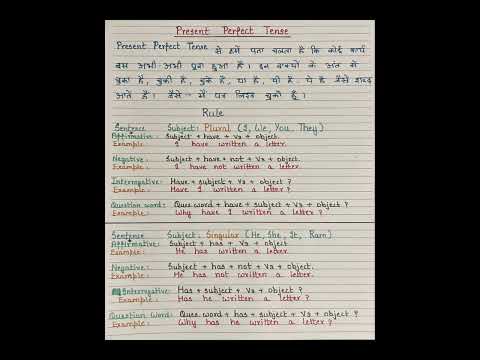 Present Perfect Tense
Present Perfect Tense से हमें पता चलता है कि कोई कार्य
बस अभी-अभी पूरा हुआ है। इन वाक्यों के अंत में
चुका है, चुकी है, चुके है, या है, यी है, ये है जैसे शब्द
आते है। जैसे - मैं पत्र लिख चुकी हूँ।
Rule
Sentence Subject: Plural (I, We, You, They)
Affirmative: Subject + have + V3 + object.
Example: I have written a letter.
Negative: Subject + have + not + V3 + object.
Example: I have not written a letter.
Interrogative: Have + subject + V3 + object ?
Example: Have I written a letter ?
Question word: Ques.word + have + subject + V3 + object ?
Example: Why have I written a letter ?
Sentence Subject: Singular (He, She, It, Ram)
Affirmative: Subject + has + V3 + object.
Example: He has written a letter.
Negative: Subject + has + not + V3 + object.
Example: He has not written a letter.
Interrogative: Has + subject + V3 + object ?
Example: Has he written a letter ?
Question Word: Ques.word + has + subject + V3 + object ?
Example: Why has he written a letter ?